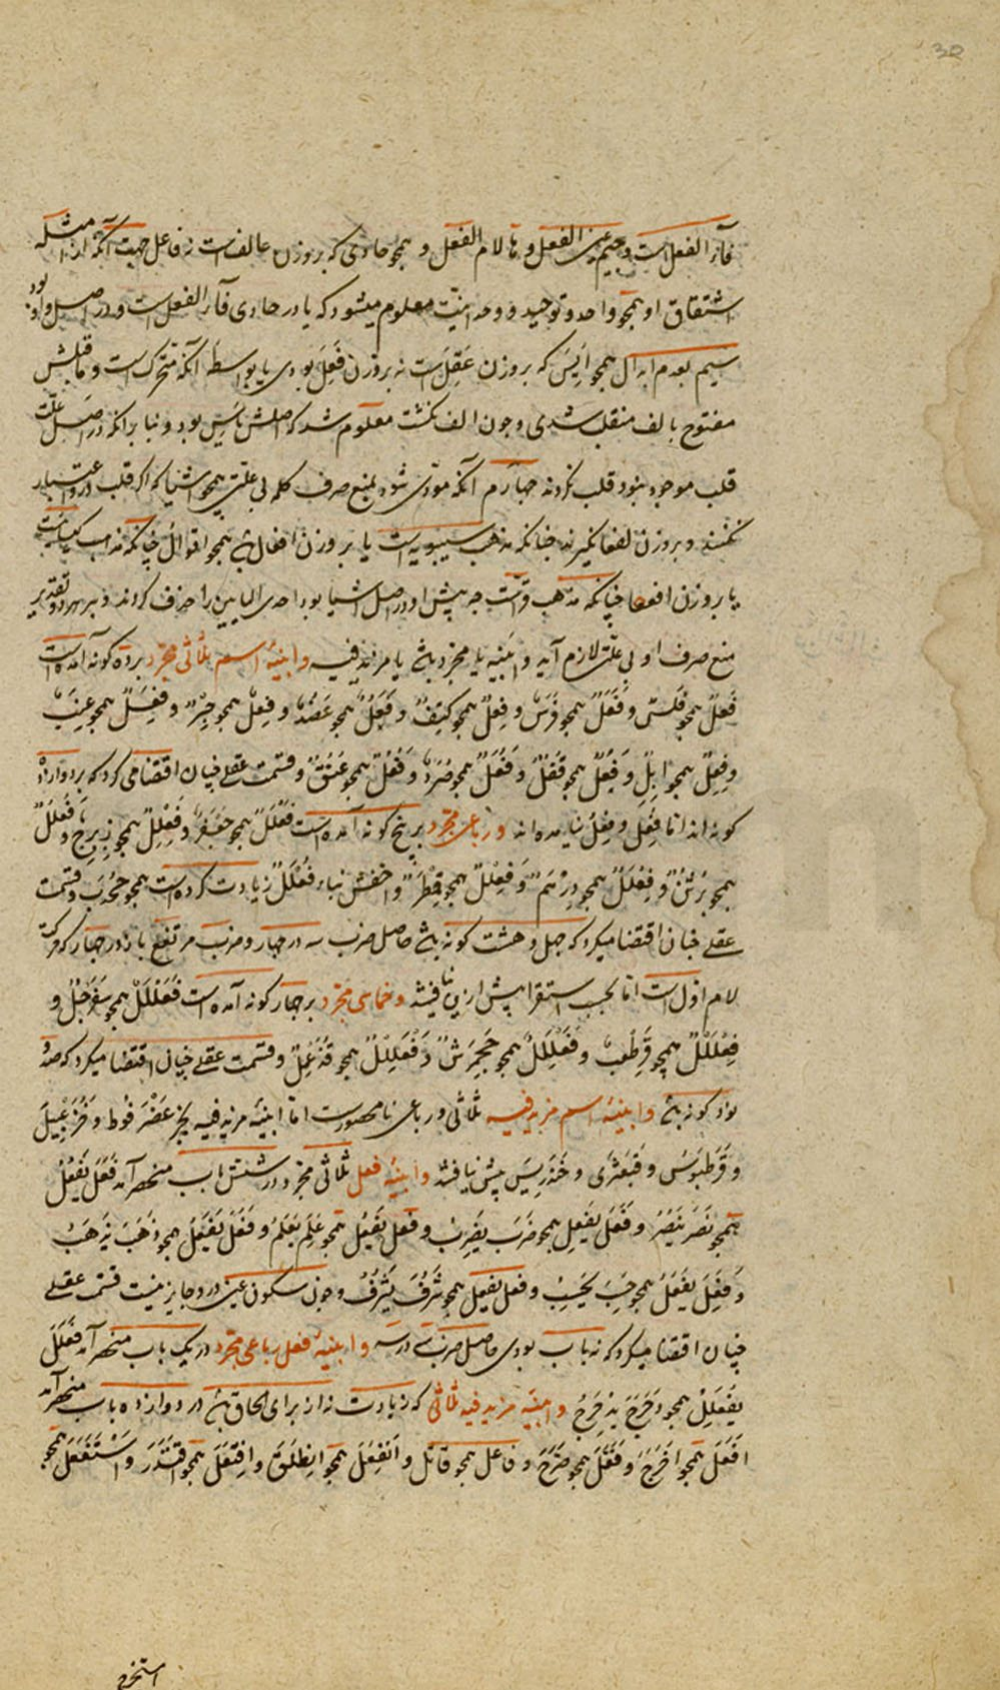 30
فآء الفعل است و جیم عین الفعل و ها لام الفعل و همجو حادی که بر وزن عالف است نه فاعل جهت آنکه از امثله
اشتقاق او همجو واحد و توحید و وحدانیت معلوم میشود که یا در حادی فآء الفعل است و در اصل واو بود
سیم بعدم ابدال همجو اَیِسَ که بر وزن عَقِلَ است نه بر وزن فَعِلَ بودی یا بواسطه آنکه متحرک است و ماقبلش
مفتوح بالف منقلب شدی و جون الف نکشت معلوم شد که اصلش یَئِسَ بود و بنا بر انکه در اصل علت
قلب موجود نبود قلب نکردند جهارم آنکه مؤدی شود بمنع صرف کلمه بی علتی همجو اشیا که اکر قلب درو اعتبار
نکنند و بر وزن لفعا نکیرند جنانکه مذهب سیبویه است یا بر وزن افعال باشد همجو اقوال جنانکه مذهب کسایست
یا بر وزن افعا جنانکه مذهب فراست جه پیش او در اصل اشیا بود احدی الیایین را حذف کردند و بر هر دو تقدیر
منع صرف او بی علتی لازم آید و ابنیه یا مجرد باشد یا مزید فیه و ابنیهٔ اسم ثلاثی مجرد بر ده کونه آمده است
فَعْلٌ همجو فَلْسٌ و فَعَلٌ همجو فَرَسٌ و فَعِلٌ همجو کَتِفٌ و فَعُلٌ همجو عَضُدٌ و فِعْلٌ همجو حِبْرٌ و فِعَلٌ همجو عِنَبٌ
و فِعِلٌ همجو اِبِلٌ و فُعْلٌ همجو قُفْلٌ و فُعَلٌ همجو صُرَدٌ و فُعُلٌ همجو عُنُقٌ و قسمت عقلی جنان اقتضا می کرد که بر دوازده
کونه اند اما فِعُل و فُعِلٌ نیامده اند و رباعی مجرد بر پنج کونه آمده است فَعْلَلٌ همجو جَعْفَرٌ و فِعْلِلٌ همجو زِبْرِجٌ و فُعْلُلٌ
همجو بُرْثُنٌ و فِعْلَلٌ همجو دِرْهَمٌ و فِعَلْلٌ همجو قِمَطْرٌ و اخفش بناء فُعْلَلٌ زیادت کرده است همجو جُخْدَبٌ و قسمت
عقلی جنان اقتضا میکرد که جهل و هشت کونه باشد حاصل ضرب سه در جهار و ضرب مرتفع باز در جهار که حرکت
لام اول است اما بحسب استقرا بیش ازین نیافتند و خماسی مجرد بر جهار کونه آمده است فَعَلْلَلٌ همجو سَفَرْجَلٌ و
فِعْلَلْلٌ همجو قِرْطَعْبٌ و فَعْلَلِلٌ همجو جَحْمَرِشٌ و فُعَلْلِلٌ همجو قُذَعْمِلٌ و قسمت عقلی جنان اقتضا میکرد که صد و
نود کونه باشد و ابنیهٔ اسم مزید فیه ثلاثی و رباعی نامحصور است اما ابنیهٔ مزید فیه بجز عَضْرَفُوط و خُزَعْبِیلَ
و قِرْطَبُوس و قَبَعْثَرَی و خَنْدَرِیسَ بیش نیافتند و ابنیهٔ فعل ثلاثی مجرد در شش باب منحصر آمد فَعَلَ یَفْعُلُ
همجو نَصَرَ یَنْصُرُ و فَعَلَ یَفْعِلُ همجو ضَرَبَ یَضْرِبُ و فَعِلَ یَفْعَلُ همجو عَلِمَ یَعْلَمُ و فَعَلَ یَفْعَلُ همجو ذَهَبَ یَذْهَبُ
و فَعِلَ یَفْعِلُ همجو حَسِبَ یَحْسِبُ و فعل یفعل همجو شَرُفَ یَشْرُفُ و جون سکون عین درو جایز نیست قسمت عقلی
جنان اقتضا میکرد که نه باب بودی حاصل ضرب سه در سه و ابنیهٔ فعل رباعی مجرد در یک باب منحصر آمد فَعْلَلَ
یُفَعْلِلُ همجو دَحْرَجَ یُدَحْرِجُ و ابنیهٔ مزید فیه ثلاثی که زیادت نه از برای الحاق باشد در دوازده باب منحصر آمد
اَفْعَلَ همجو اَخْرَجَ و فَعَّلَ همجو صَرَّحَ و فاعل همجو قاتل و انفعل همجو انطلق و افتعل همجو اقتدر و استفعل همجو
استخرج